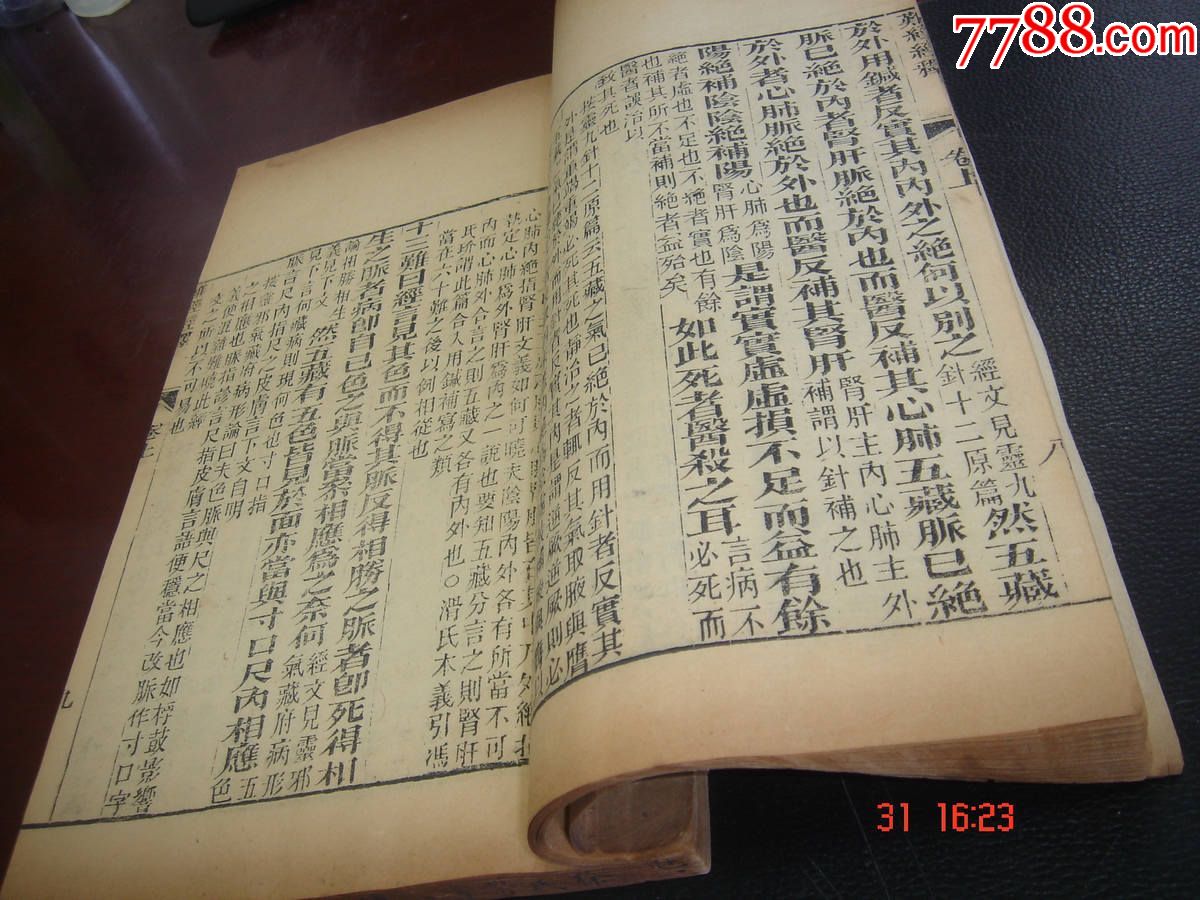 難經經釋 卷上 八
於外用鍼者反實其內內外之絕何以別之經文見靈九針十二原篇然五藏
脈已絕於內者腎肝脈絕於內也而醫反補其心肺五藏脈已絕
於外者心肺脈絕於外也而醫反補其腎肝腎肝主內心肺主外補謂以針補之也
陽絕補陰陰絕補陽心肺為陽腎肝為陰是謂實實虛虛損不足而益有餘
絕者虛也不足也不絕者實也有餘也補其所不當補則絕者益殆矣如此死者醫殺之耳言病不必死而
醫者誤治以致其死也
按靈九針十二原篇云五藏之氣已絕於內而用針者反實其
外是謂重竭重竭必死其死也靜治之者輒反其氣取腋與膺
於外而用針者反實其內是謂逆厥逆厥則必
心肺內絕指腎肝文義如何可曉夫陰陽內外各有所當不可
執定心肺為外腎肝為內之一說也要知五藏分言之則腎肝
內而心肺外合言之則五藏又各有內外也○滑氏本義引馮
氏玠謂此篇合入用鍼補瀉之類
當在六十難之後以例相從也
十三難曰經言見其色而不得其脈反得相勝之脈者即死得相
生之脈者病即自已色之與脈當參相應為之奈何經文見靈邪氣藏府病形
論相勝相生義見下文然五藏有五色皆見於面亦當與寸口尺內相應五色
見下言何藏病則現何色也寸口指脈言尺內指尺之皮膚言下文自明
按靈邪氣藏府病形論曰夫色脈與尺之相應也如桴鼓影響
之相應也脈指診言尺指皮膚言語便穩當今改脈作寸口字
義便混淆難曉此經
文之所以不可易也
卷上 九
7788.com
31 16:23